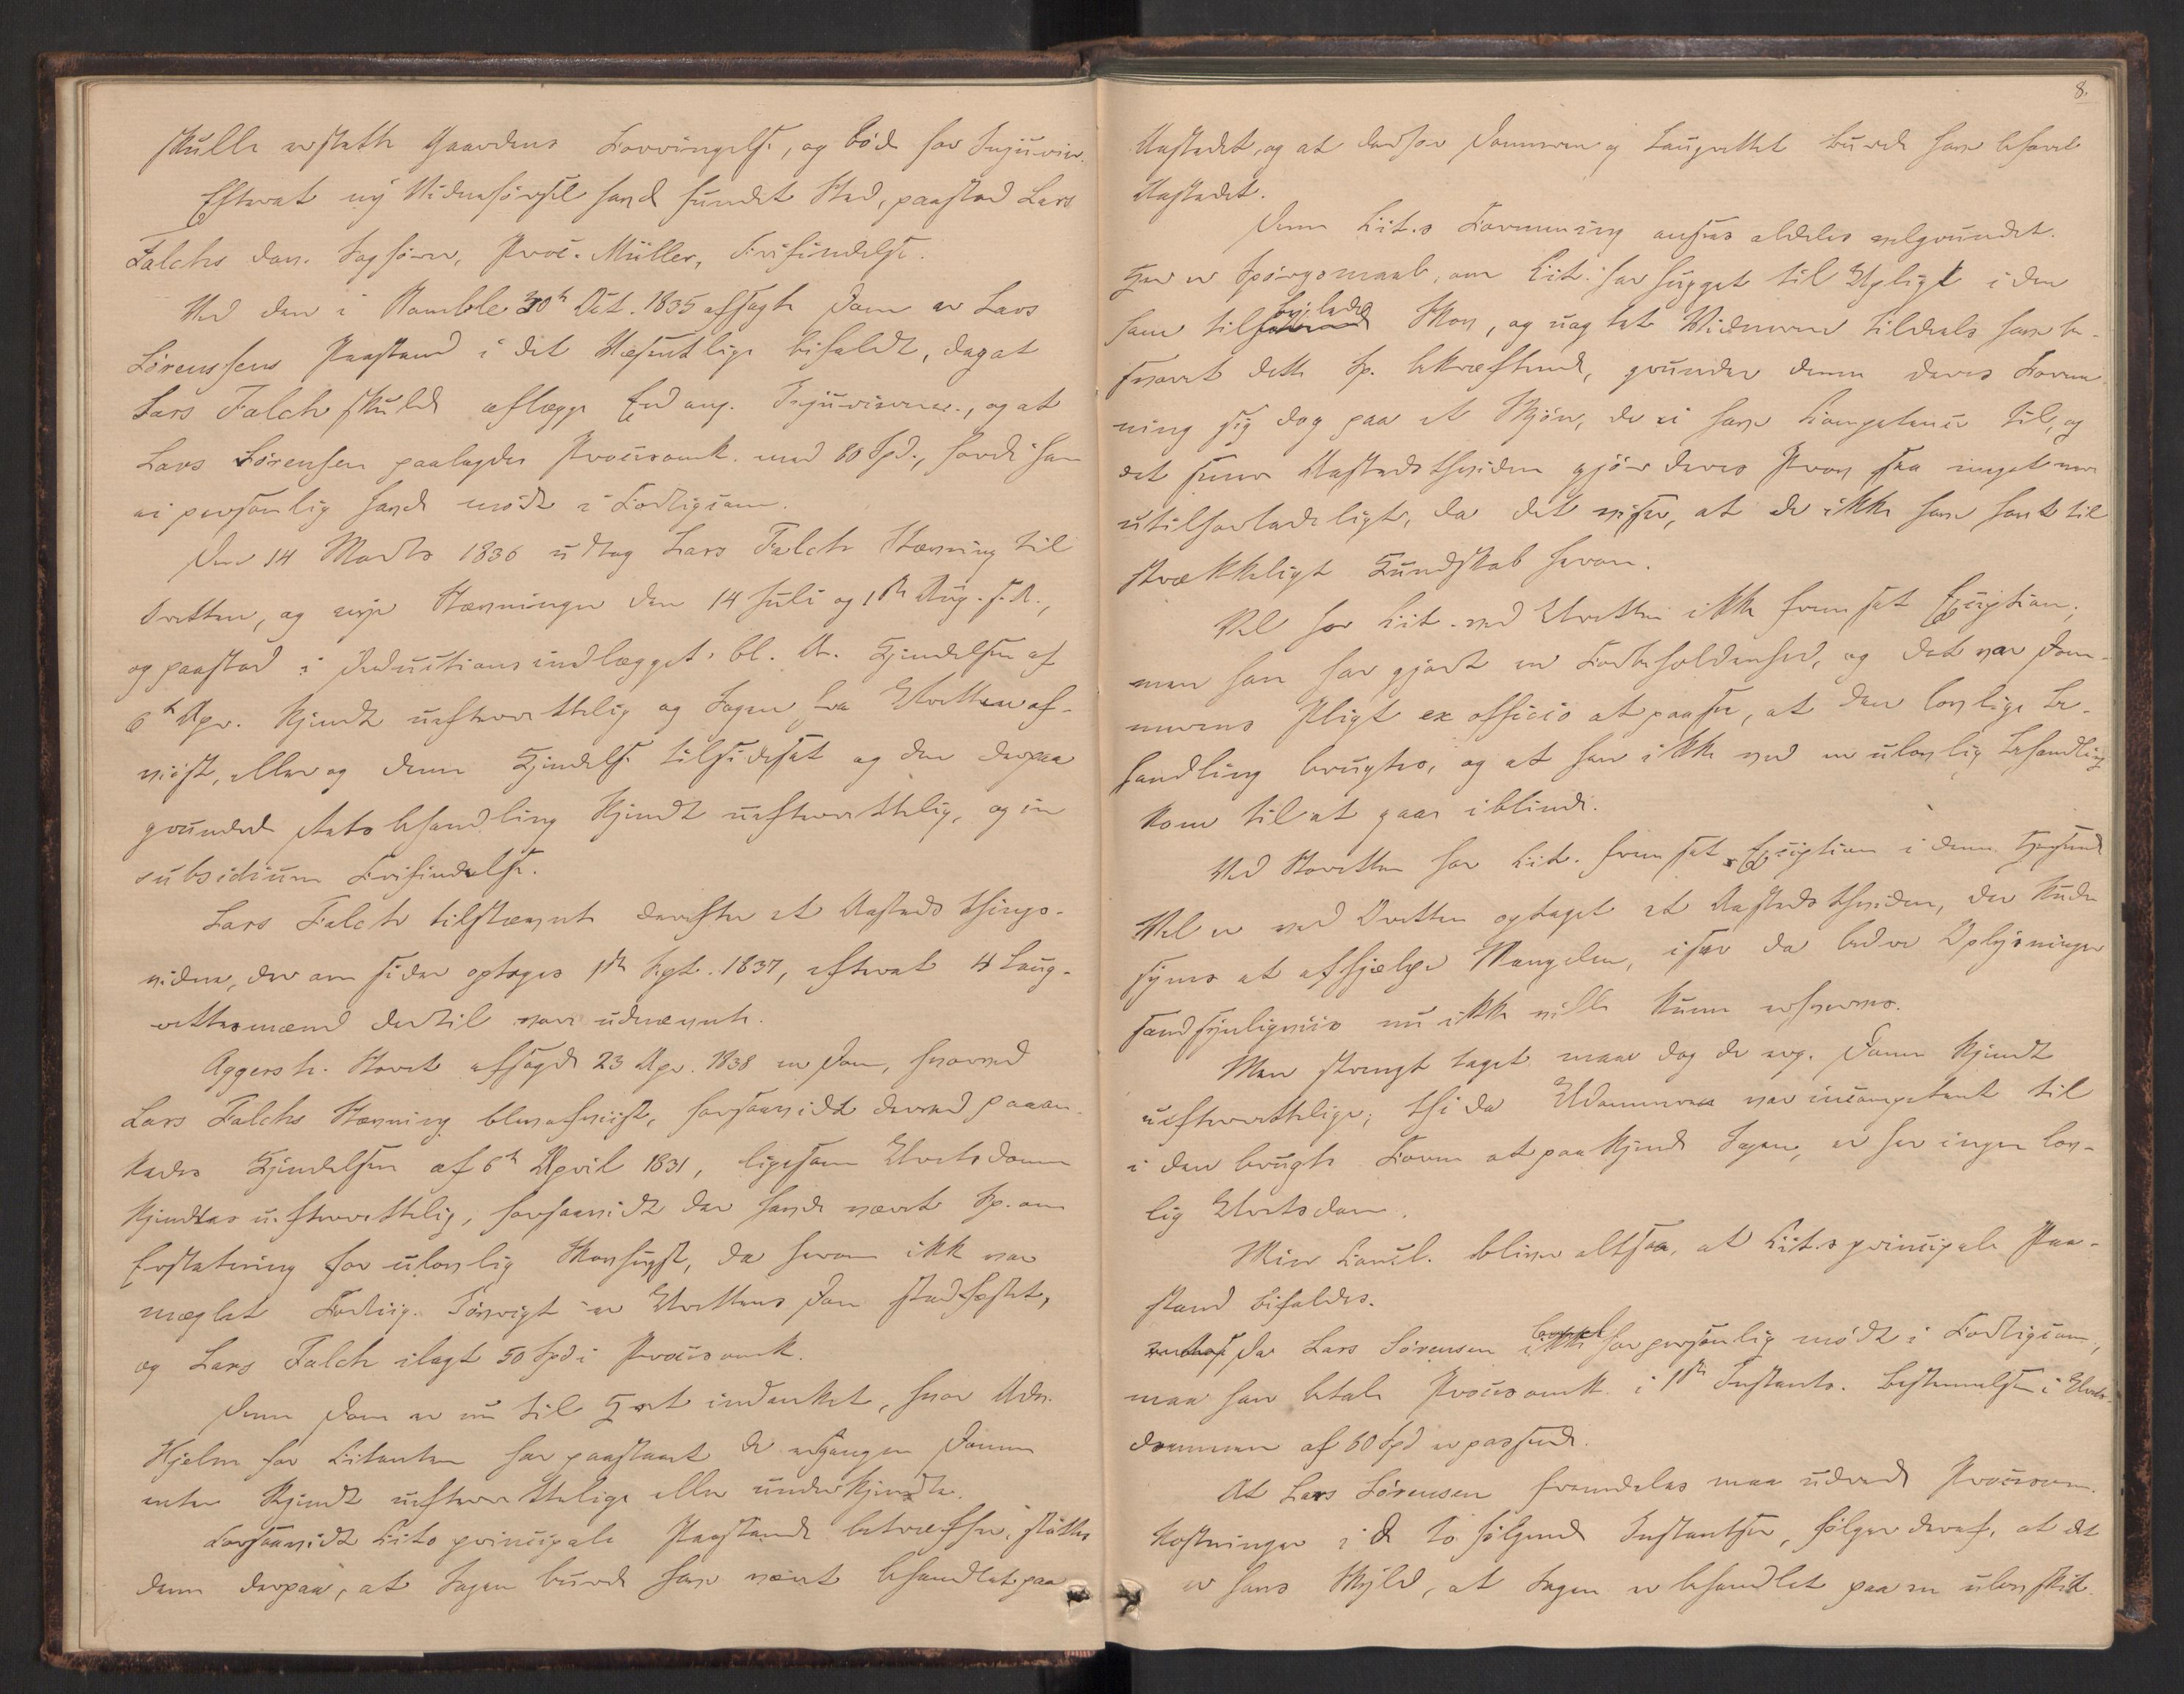 skulle erstatte Gaardens Forringelse, og bøde for Injurier.
Efterat ny Vidneførsel havde fundet Sted, paastod Lars
Falchs dav. Sagfører, Proc. Müller, Frifindelse.
Ved den i Bamble 30te Oct. 1835 afsagte Dom er Lars
Sørenssens Paastand i det Væsentlige bifaldt, dog at
Lars Falch skulde aflægge Eed ang. Injurierne, og at
Lars Sørensen paalagdes Procesomk. med 60 Spd., fordi han
ei personlig havde mødt i Forligscom.
Den 14 Marts 1836 udtog Lars Falch Stævning til
Oretten, og nye Stævninger den 14 Juli og 1ste Aug. s. A.,
og paastod i Deductionsindlægget bl. A. Kjendelsen af
6te Apr. kjendt uefterrettelig og Sagen fra Uretten af-
viist, eller og denne Kjendelse tilsidesat og den derpaa
grundede Retsbehandling kjendt uefterrettelig, og in
subsidium Frifindelse.
Lars Falch tilstævnte derefter et Aasteds Things-
vidne, der om sider optoges 1ste Sept. 1837, efterat 4 Laug-
rettesmænd dertil vare udnævnte.
Aggersh. Storet afsagde 23 Apr. 1838 en Dom, hvorved
Lars Falchs Stævning blev afviist, forsaavidt derved paaan-
kedes Kjendelsen af 6te April 1831, ligesom Uretsdommen
kjendtes uefterrettelig, forsaavidt der havde været Sp. om
Erstatning for ulovlig Skovhugst, da herom ikke var
mæglet Forlig. Forøvrigt er Urettens Dom stadfæstet,
og Lars Falch ilagt 50 Spd i Procesomk.
Denne Dom er nu til Hret indanket, hvor Adv.
Hjelm for Citanten har paastaaet de ergangne Domme
enten kjendt uefterrettelige eller underkjendte.
Forsaavidt Cits principale Paastand betræffer, støttes
denne derpaa, at Sagen burde have været behandlet paa
8.
Aastedet, og at derfor Dommeren og Laugrettet burde have besaret
Aastedet.
Denne Cit.s Formening ansees aldeles velgrundet.
Her er Spørgsmaal, om Cit. har hugget til Upligt i den
ham tilhørende bøjlede Skov, og uagtet Vidnerne tildeels have be-
svaret dette Sp. bekræftende, grunder denne deres Forme-
ning sig dog paa et Skjøn, de ei have Competence til, og
det senere Aastedsthsvidne gjør deres Prov saa meget mere
utilforladeligt, da det viser, at de ikke have havt til-
strækkeligt Kundskab herom.
Vel har Cit. ved Uretten ikke fremsat Exception;
men han har gjort en Forbeholdenhed, og det var Dom-
merens Pligt ex officio at paasee, at den lovlige Be-
handling brugtes, og at han ikke ved en ulovlig Behandling
kom til at gaae iblinde.
Ved Storetten har Cit. fremsat Exception i denne Henseende
Vel er ved Oretten optaget et Aasteds thsvidne, der kunde
synes at afhjælpe Mangelen, især da bedre Oplysninger
sandsynligviis nu ikke ville kunne erhverves.
Men strengt taget maae dog de erg. Domme kjendt
uefterrettelige; thi da Udommeren var incompetent til
i den brugte Form at paakjende Sagen, er her ingen lov-
lig Uretsdom.
Min Concl. bliver altsaa, at Cit.s principale Paa-
stand bifaldes.
Da Lars Sørensen ikke har personlig mødt i Forligscom.,
maa han betale Procesomk. i 1ste Instants. Bestemmelsen i Urets-
dommen af 60 Spd er passende.
At Lars Sørensen fremdeles maa udrede Procesom-
kostninger i de to følgende Instantser, følger deraf, at det
er hans Skyld, at Sagen er behandlet paa en ulov skik